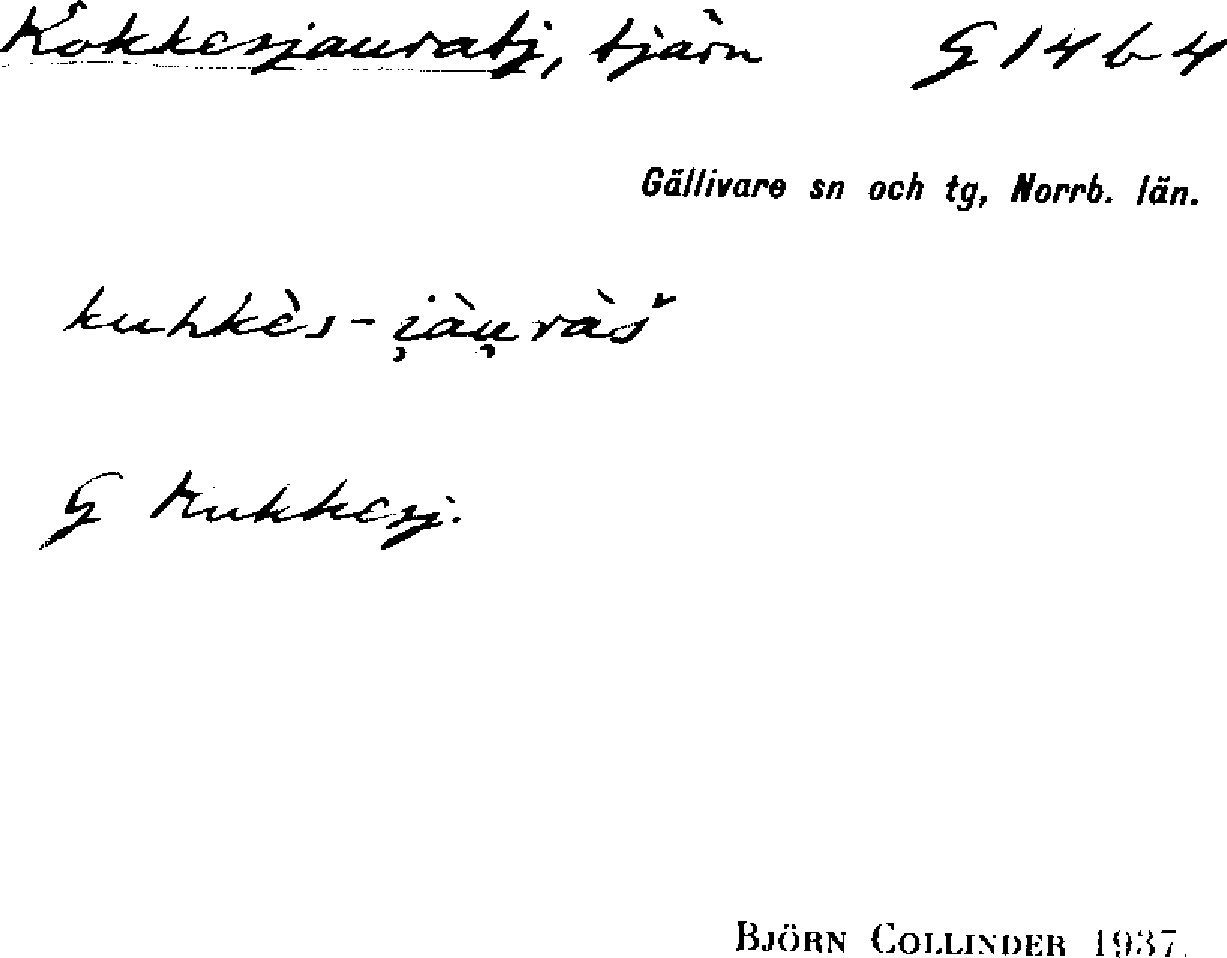 Kokkesjauratj, tjärn G 14 b 4
Gällivare sn och tg, Norrb. län.
kuhkès-i̯àu̯ràš
G Kukkesj.
BJÖRN COLLINDER 1937.